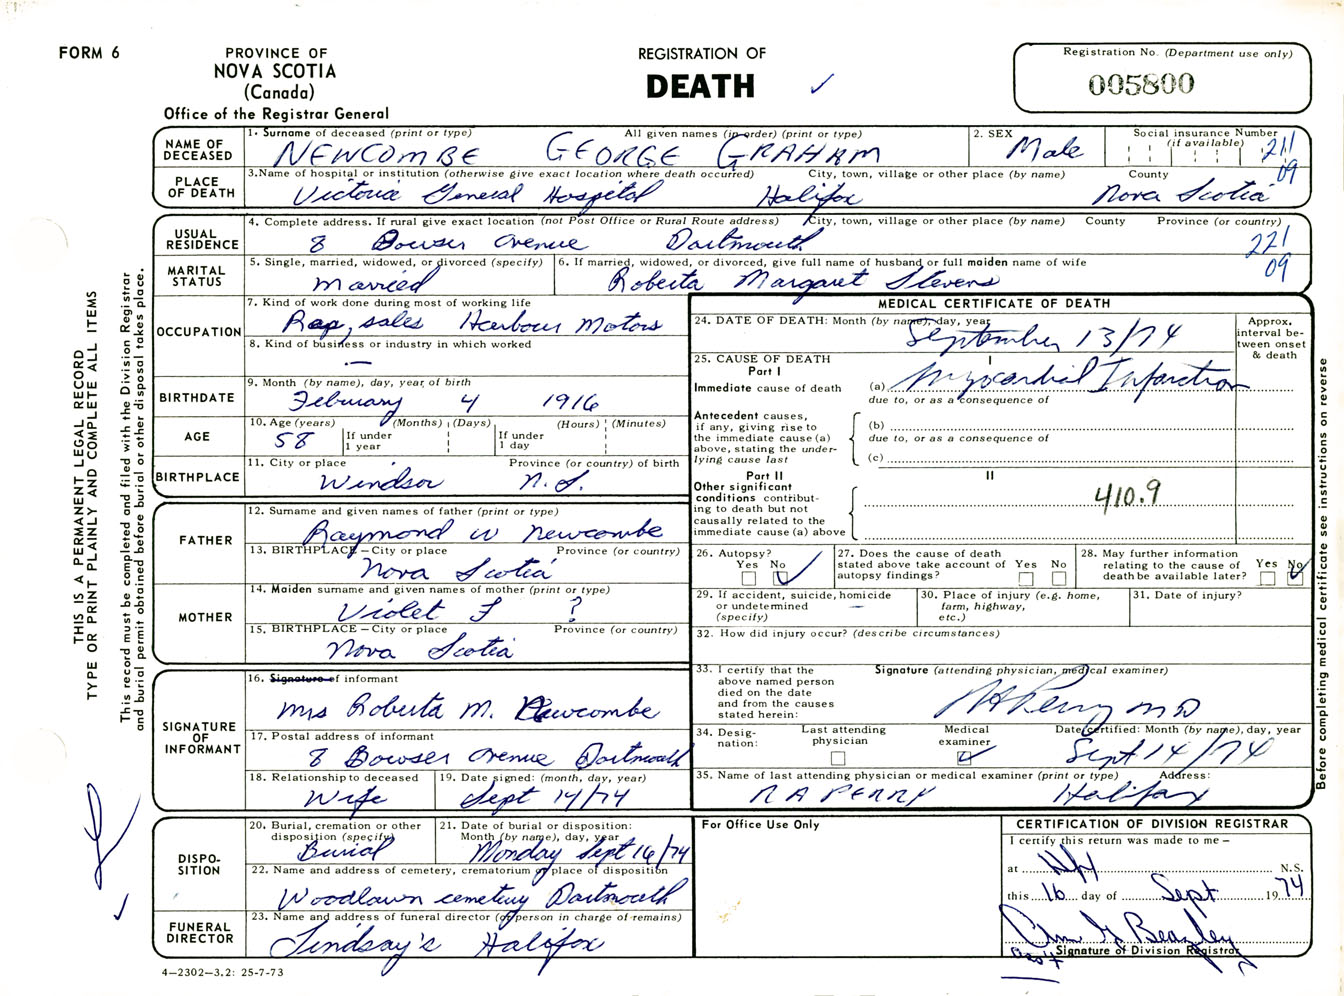 FORM 6
PROVINCE OF
NOVA SCOTIA
(Canada)
Office of the Registrar General
REGISTRATION OF
DEATH ✓
Registration No. (Department use only)
005800
NAME OF DECEASED
1. Surname of deceased (print or type) All given names (in order) (print or type)
NEWCOMBE GEORGE GRAHAM
2. SEX
Male
Social insurance Number
(if available)
211
09
PLACE OF DEATH
3. Name of hospital or institution (otherwise give exact location where death occurred) City, town, village or other place (by name) County
Victoria General Hospital Halifax Nova Scotia
USUAL RESIDENCE
4. Complete address. If rural give exact location (not Post Office or Rural Route address) City, town, village or other place (by name) County Province (or country)
8 Bowser Avenue Dartmouth
221
09
MARITAL STATUS
5. Single, married, widowed, or divorced (specify)
married
6. If married, widowed, or divorced, give full name of husband or full maiden name of wife
Roberta Margaret Stevens
OCCUPATION
7. Kind of work done during most of working life
Rep, sales Harbour Motors
8. Kind of business or industry in which worked
—
BIRTHDATE
9. Month (by name), day, year, of birth
February 4 1916
AGE
10. Age (years) (Months) (Days) (Hours) (Minutes)
58 If under 1 year If under 1 day
BIRTHPLACE
11. City or place Province (or country) of birth
Windsor N.S.
FATHER
12. Surname and given names of father (print or type)
Raymond W Newcombe
13. BIRTHPLACE – City or place Province (or country)
Nova Scotia
MOTHER
14. Maiden surname and given names of mother (print or type)
Violet F ?
15. BIRTHPLACE – City or place Province (or country)
Nova Scotia
SIGNATURE OF INFORMANT
16. Signature of informant
Mrs Roberta M. Newcombe
17. Postal address of informant
8 Bowser Avenue Dartmouth
18. Relationship to deceased
Wife
19. Date signed: (month, day, year)
Sept 14/74
DISPO-SITION
20. Burial, cremation or other disposition (specify)
Burial
21. Date of burial or disposition: Month (by name), day, year
Monday Sept 16/74
22. Name and address of cemetery, crematorium or place of disposition
Woodlawn cemetery Dartmouth
FUNERAL DIRECTOR
23. Name and address of funeral director (or person in charge of remains)
Lindsay's Halifax
MEDICAL CERTIFICATE OF DEATH
24. DATE OF DEATH: Month (by name), day, year
September 13/74
Approx. interval between onset & death
25. CAUSE OF DEATH
Part I
I
Immediate cause of death (a) Myocardial Infarction
due to, or as a consequence of
Antecedent causes, if any, giving rise to the immediate cause (a) above, stating the underlying cause last
(b)
due to, or as a consequence of
(c)
Part II
II
Other significant conditions contributing to death but not causally related to the immediate cause (a) above
410.9
26. Autopsy?
Yes No ✓
27. Does the cause of death stated above take account of autopsy findings?
Yes No
28. May further information relating to the cause of death be available later?
Yes No ✓
29. If accident, suicide, homicide or undetermined (specify) —
30. Place of injury (e.g. home, farm, highway, etc.)
31. Date of injury?
32. How did injury occur? (describe circumstances)
33. I certify that the above named person died on the date and from the causes stated herein:
Signature (attending physician, medical examiner)
RAPerry MD
34. Desig-nation:
Last attending physician
Medical examiner ✓
Date certified: Month (by name), day, year
Sept 14/74
35. Name of last attending physician or medical examiner (print or type) Address:
R A PERRY Halifax
For Office Use Only
CERTIFICATION OF DIVISION REGISTRAR
I certify this return was made to me –
at Hfx N.S.
this 16 day of Sept 1974
Ann G Beazley
Ass't Signature of Division Registrar
4–2302–3.2: 25-7-73
THIS IS A PERMANENT LEGAL RECORD
TYPE OR PRINT PLAINLY AND COMPLETE ALL ITEMS
This record must be completed and filed with the Division Registrar
and burial permit obtained before burial or other disposal takes place.
Before completing medical certificate see instructions on reverse